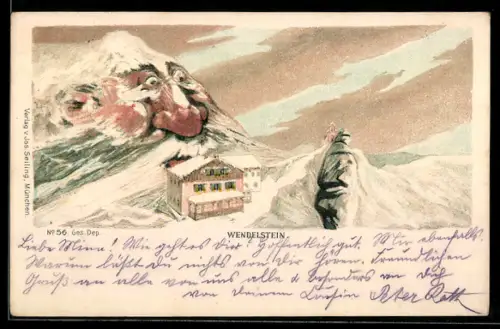 Verlag v. Jos. Seiling, München.
No 56 Ges. Dep.
WENDELSTEIN.
Liebe Minna! Wie geht es dir? Hoffentlich gut. Mir ebenfalls.
Warum läßt du nichts von dir hören. Freundlichen
Gruß an alle von uns alle & besonders an dich
von deinem Cousin Peter